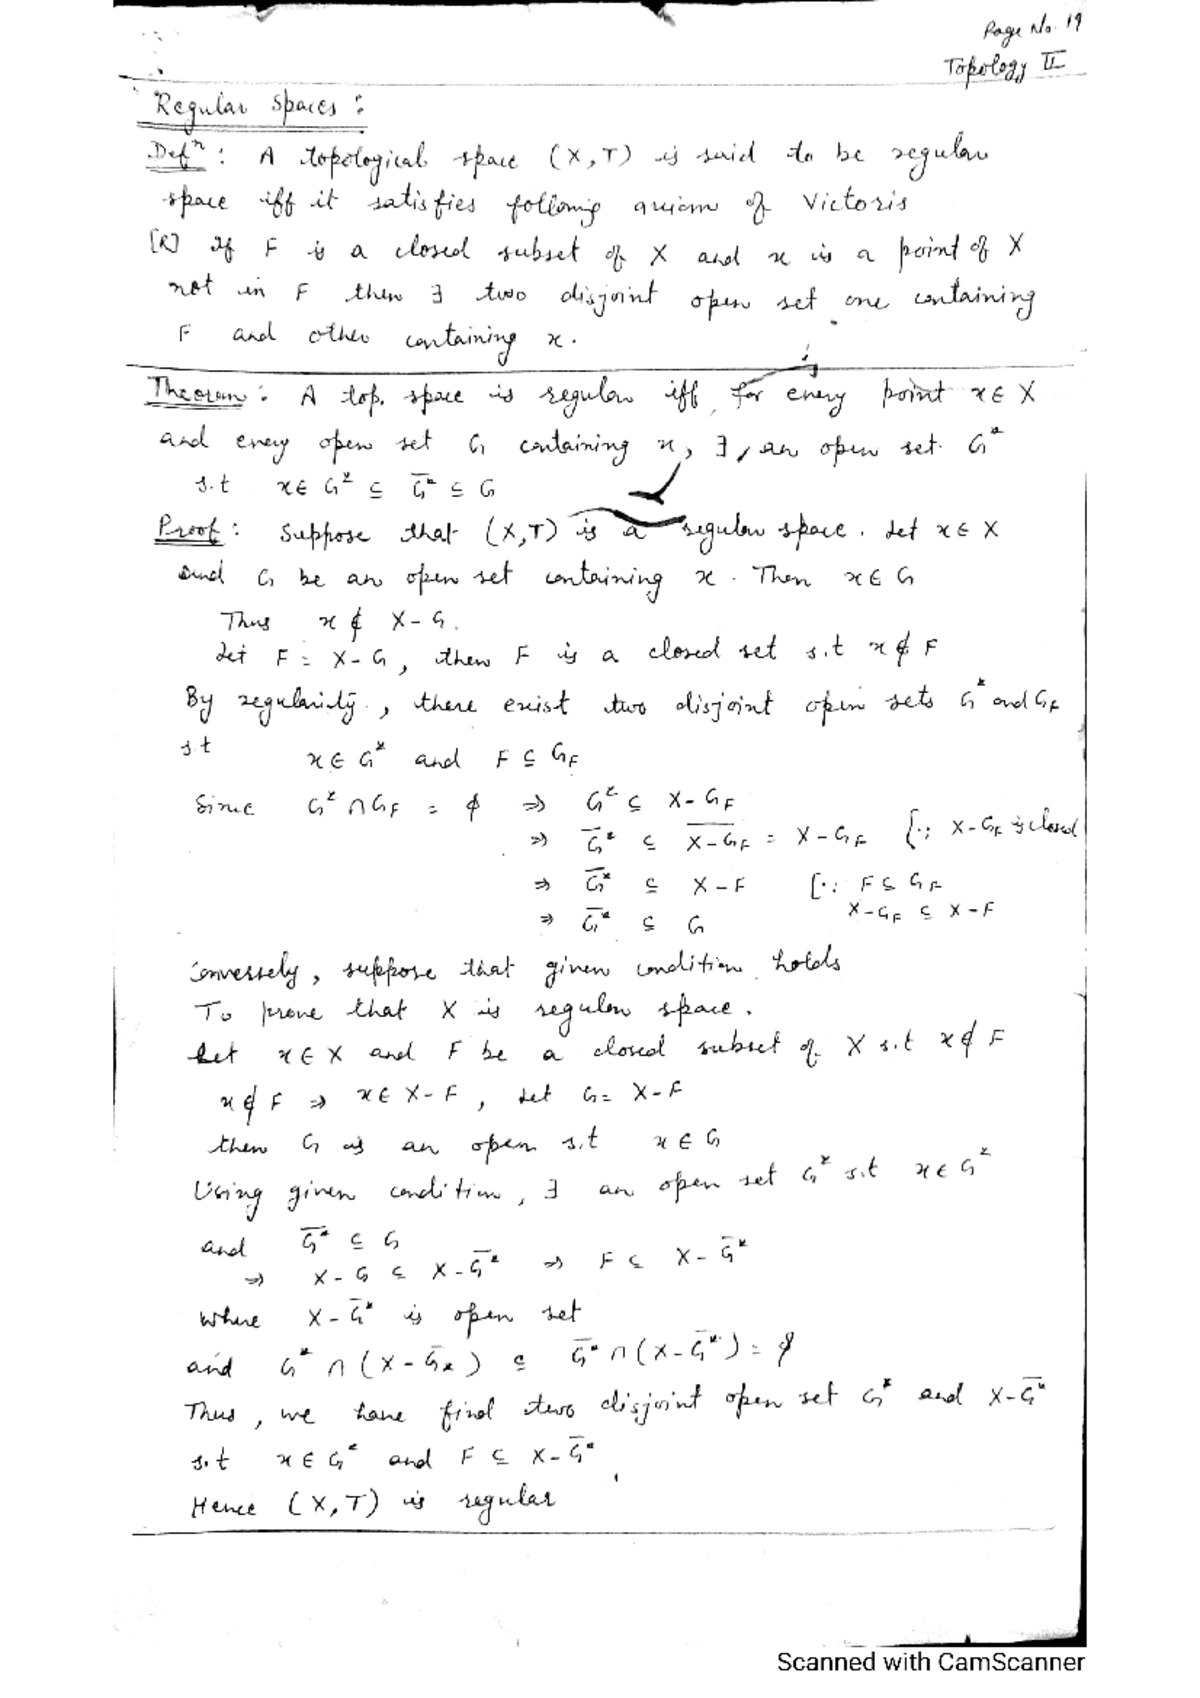 Page No. 19
Topology II
Regular Spaces :
Defⁿ : A topological space (X,T) is said to be regular
space iff it satisfies following axiom of Victoris
[R] If F is a closed subset of X and x is a point of X
not in F then ∃ two disjoint open set one containing
F and other containing x.
Theorem : A top. space is regular iff for every point x ∈ X
and every open set G containing x, ∃, an open set G*
s.t x ∈ G* ⊆ G̅* ⊆ G
Proof : Suppose that (X,T) is a regular space. Let x ∈ X
and G be an open set containing x. Then x ∈ G
Thus x ∉ X - G.
Let F = X - G, then F is a closed set s.t x ∉ F
By regularity, there exist two disjoint open sets G* and G_F
s.t x ∈ G* and F ⊆ G_F
Since G* ∩ G_F = φ ⇒ G* ⊆ X - G_F
⇒ G̅* ⊆ \overline{X - G_F} = X - G_F [∵ X - G_F is closed
⇒ G̅* ⊆ X - F [∵ F ⊆ G_F
⇒ G̅* ⊆ G X - G_F ⊆ X - F
Conversely, suppose that given condition holds
To prove that X is regular space.
Let x ∈ X and F be a closed subset of X s.t x ∉ F
x ∉ F ⇒ x ∈ X - F, Let G = X - F
then G is an open s.t x ∈ G
Using given condition, ∃ an open set G* s.t x ∈ G*
and G̅* ⊆ G
⇒ X - G ⊆ X - G̅* ⇒ F ⊆ X - G̅*
where X - G̅* is open set
and G* ∩ (X - G̅*) ⊆ G̅* ∩ (X - G̅*) = φ
Thus, we have find two disjoint open set G* and X - G̅*
s.t x ∈ G* and F ⊆ X - G̅*
Hence (X,T) is regular
Scanned with CamScanner